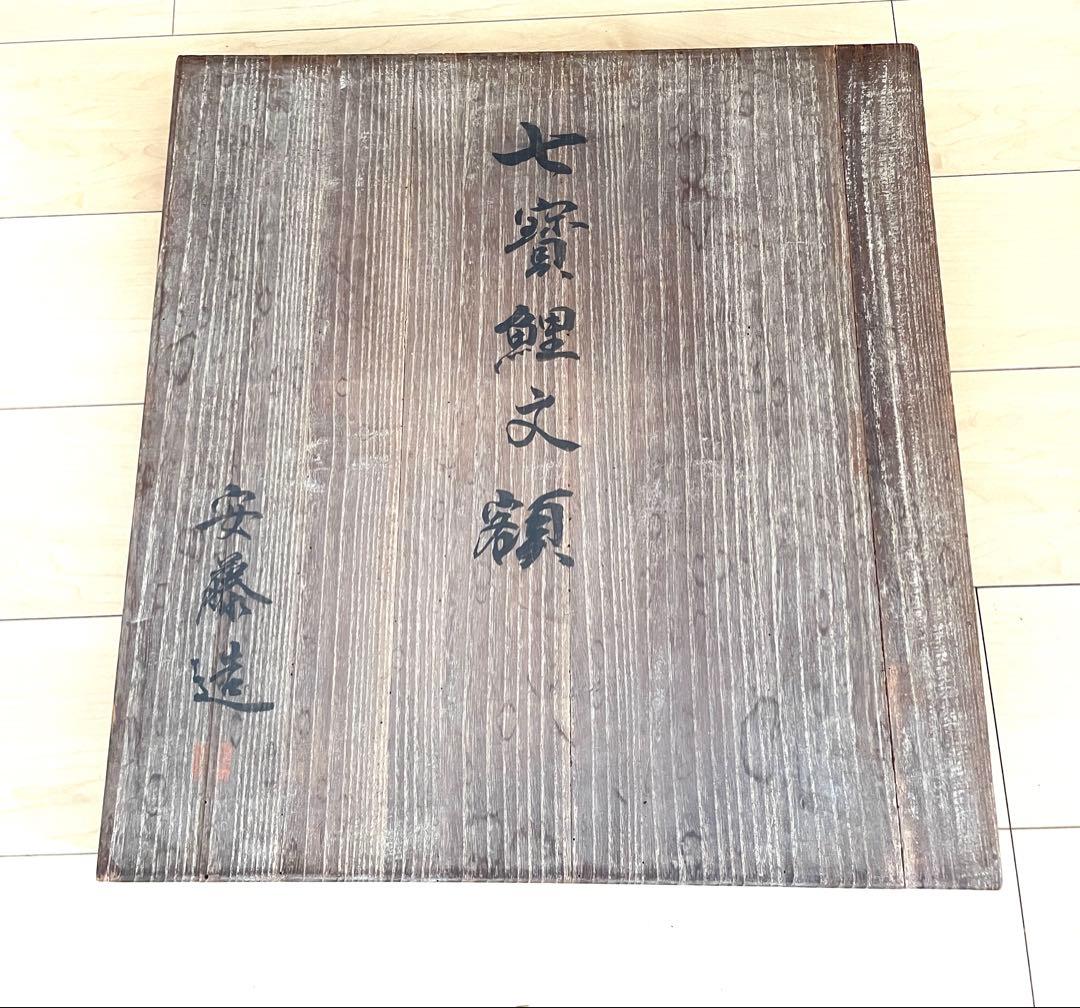 七寳鯉文額
安藤造